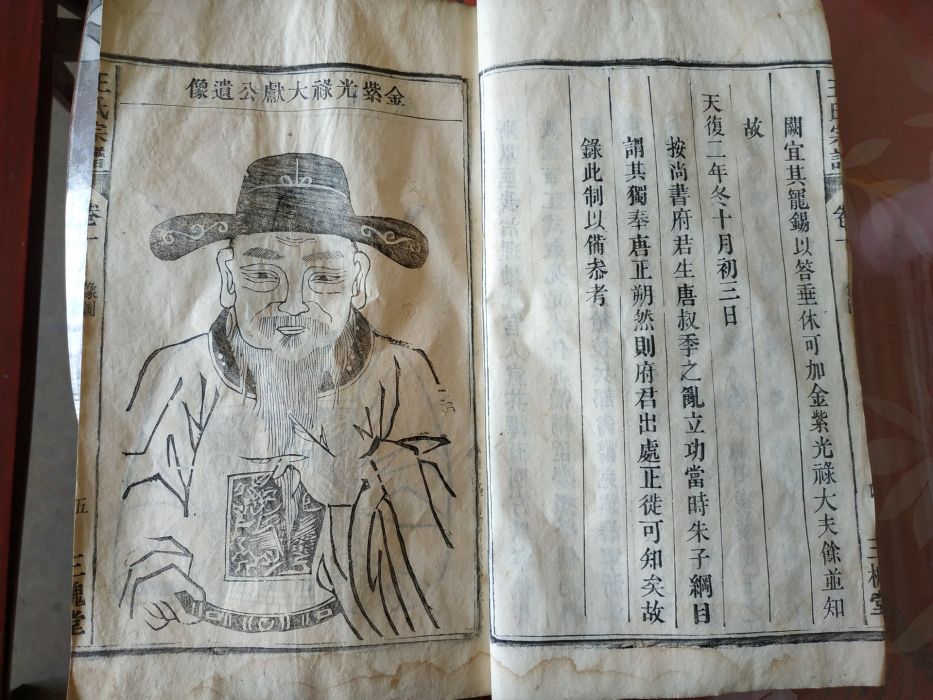 王氏宗譜
卷一
三槐堂
闕宜其寵錫以答垂休可加金紫光祿大夫餘並知
故
天復二年冬十月初三日
按尚書府君生唐叔季之亂立功當時朱子綱目
謂其獨奉唐正朔然則府君出處正徙可知矣故
錄此制以備叅考
金紫光祿大獻公遺像
王氏宗譜
卷一
像圖
五
三槐堂